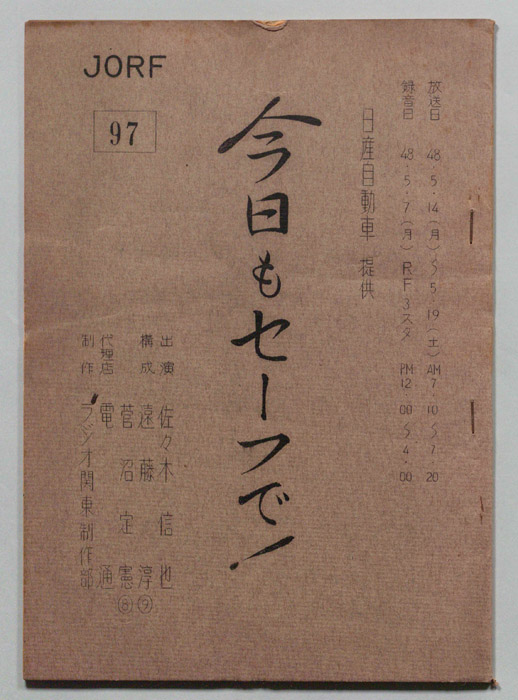 JORF
97
放送日 48.5.14(月)〜5.19(土) AM7.10〜7.20
録音日 48.5.7(月) RF3スタ PM12.00〜4.00
日産自動車 提供
今日もセーフで!
出演 佐々木信也
構成 遠藤淳⑨
菅沼定憲⑧
代理店 電通
制作 ラジオ関東制作部